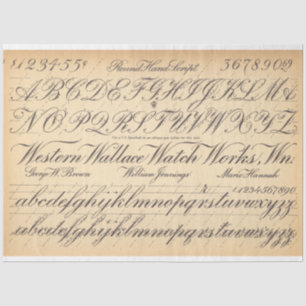 $12345$ Round Hand Script. 367890
ABCDEFGHIJKLM
NOPQRSTUVWXYZ
Western Wallace Watch Works, Wn.
George W. Brown William Jennings Marie Hannah
1234567890
abcdefghijklmnopqrstuvwxyz
abcdefghijklmnopqrstuvwxyz